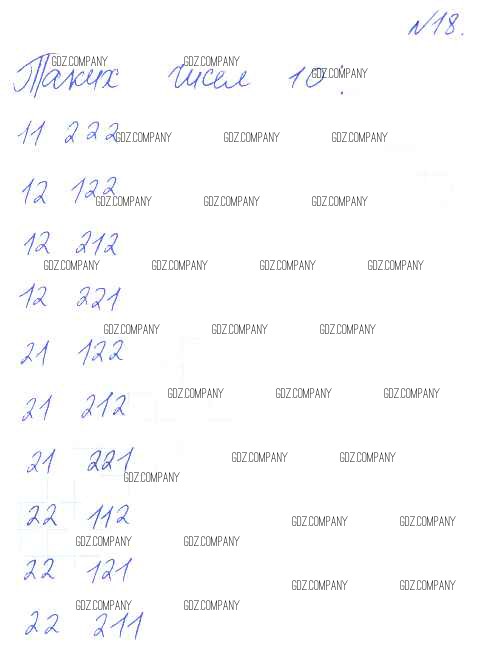 №18.
GDZ.COMPANY GDZ.COMPANY GDZ.COMPANY
Таких чисел 10:
11 222
GDZ.COMPANY GDZ.COMPANY GDZ.COMPANY
12 122
GDZ.COMPANY GDZ.COMPANY GDZ.COMPANY
12 212
GDZ.COMPANY GDZ.COMPANY GDZ.COMPANY GDZ.COMPANY
12 221
GDZ.COMPANY GDZ.COMPANY GDZ.COMPANY
21 122
GDZ.COMPANY GDZ.COMPANY GDZ.COMPANY
21 212
GDZ.COMPANY GDZ.COMPANY
21 221
GDZ.COMPANY
22 112
GDZ.COMPANY GDZ.COMPANY
GDZ.COMPANY GDZ.COMPANY
22 121
GDZ.COMPANY GDZ.COMPANY
GDZ.COMPANY GDZ.COMPANY
22 211